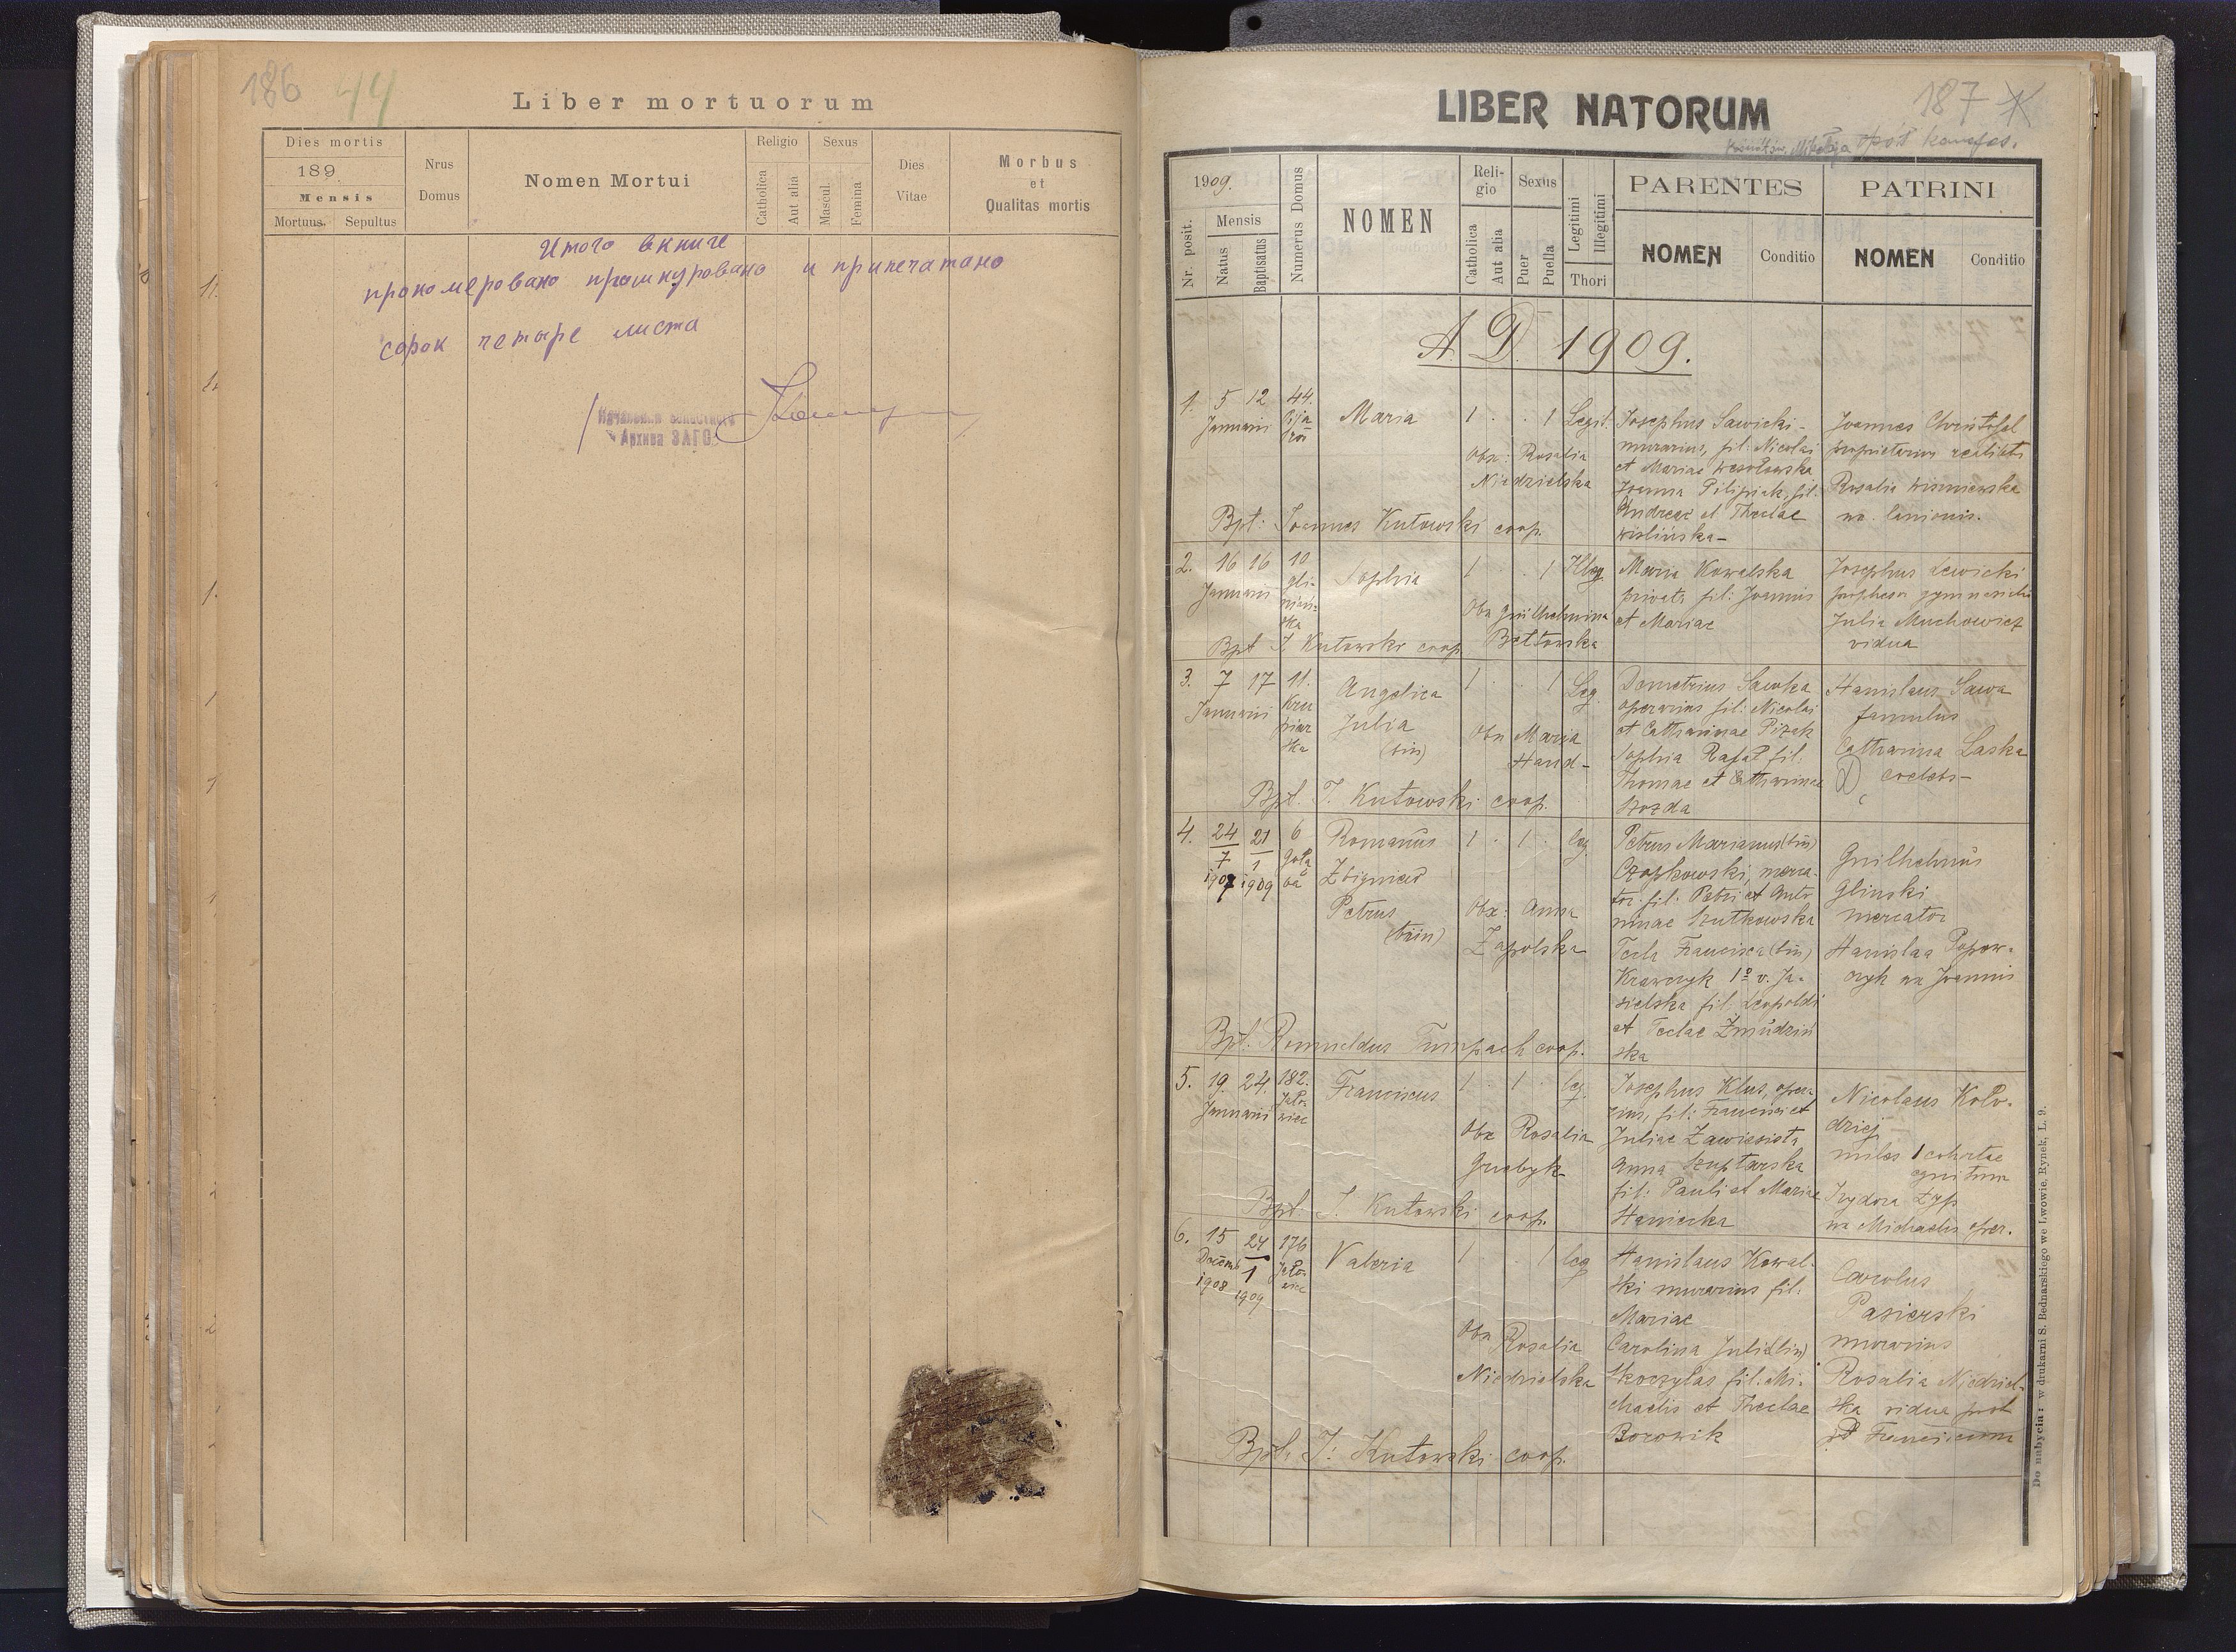 186 44
Liber mortuorum
Dies mortis
189
Mensis
Mortuus. Sepultus
Nrus
Domus
Nomen Mortui
Religio
Catholica
Aut alia
Sexus
Mascul.
Femina
Dies
Vitae
Morbus
et
Qualitas mortis
Итого в книге
прономеровано прошнуровано и припечатано
сорок четыре листа
Архива ЗАГС
187
LIBER NATORUM
1909.
Nr. posit.
Mensis
Natus
Baptisatus
Numerus Domus
NOMEN
Religio
Catholica
Aut alia
Sexus
Puer
Puella
Legitimi
Illegitimi
Thori
PARENTES
NOMEN
Conditio
PATRINI
NOMEN
Conditio
A. D. 1909.
1. 5 12 44.
Januarii
Maria
1 . . 1 Legit.
Obx: Rosalia
Niedzielska
Josephus Sawicki -
murarius, fil: Nicolai
et Mariae Wesołowska
Joanna Pilipiak, fil:
Andreae et Theclae
Wiślińska -
Joannes Christofel
proprietarius realitatis
Rosalia Wiśniewska
ux. lanionis.
Bpt: Joannes Kutowski coop.
2. 16 16 10
Januarii
gli-
niań-
ska
Sophia
1 . . 1 Illeg.
Obx Guilhelmina
Maria Kowalska
privata fil: Joannis
et Mariae
Josephus Lewicki
professor gymnasialis
Julia Muchowicz
vidua
Bpt J. Kutowski coop.
3. 7 17 11.
Januarii
Kru
piar
ska
Angelica
Julia
(bin)
1 . . 1 Leg.
Obx Maria
Hand-
Demetrius Sawka
operarius fil: Nicolai
et Catharinae Pizak
Sophia Rafał fil:
Thomae et Catharinae
Hozda
Stanislaus Sawa
famulus
Catharina Laska
coelebs -
Bpt. J. Kutowski coop.
4. 24 21 6
7 1
1907 1909
Romanus
Zbigniew
Petrus
(trin)
1 . 1 . leg
Obx: Anna
Zapolska
Petrus Marianus (bin)
Czapkowski, merca-
tor fil: Petri et Anto
ninae Szutkowska
Tecla Francisca (bin)
Krawczyk 1º v. Ja-
sielska fil: Leopoldi
et Teclae Żmudziń
ska
Guilhelmus
Glinski
mercator
Stanislaa Popow-
czyk ux Joannis
Bpt. Romualdus Tumpach coop.
5. 19. 24. 182.
Januarii
Jało-
wiec
Franciscus
1 . 1 . leg.
Obx Rosalia
Grzbyk
Josephus Klus, opera-
rius, fil: Francisci et
Juliae Zawiesista
Anna Szuptarska
fil: Pauli et Mariae
Nicolaus Koło-
dziej
miles 1 cohortae
equitum
Izydora Zyp
ux Michaelis oper.
Bpt. J. Kutowski coop.
6. 15 24 176
Decemb 1
1908 1909
Jało-
wiec
Valeria
1 . . 1 leg
Obx Rosalia
Niedzielska
Stanislaus Kowal-
ski murarius fil:
Mariae
Carolina Julia (bin)
Skoczylas fil: Mi-
chaelis et Theclae
Borowik
Carolus
Pasierski
murarius
Rosalia Niedziel-
ska vidua post
Franciscum
Bpt. J: Kutowski coop.
Do nabycia: w drukarni S. Bednarskiego we Lwowie. Rynek, L. 9.